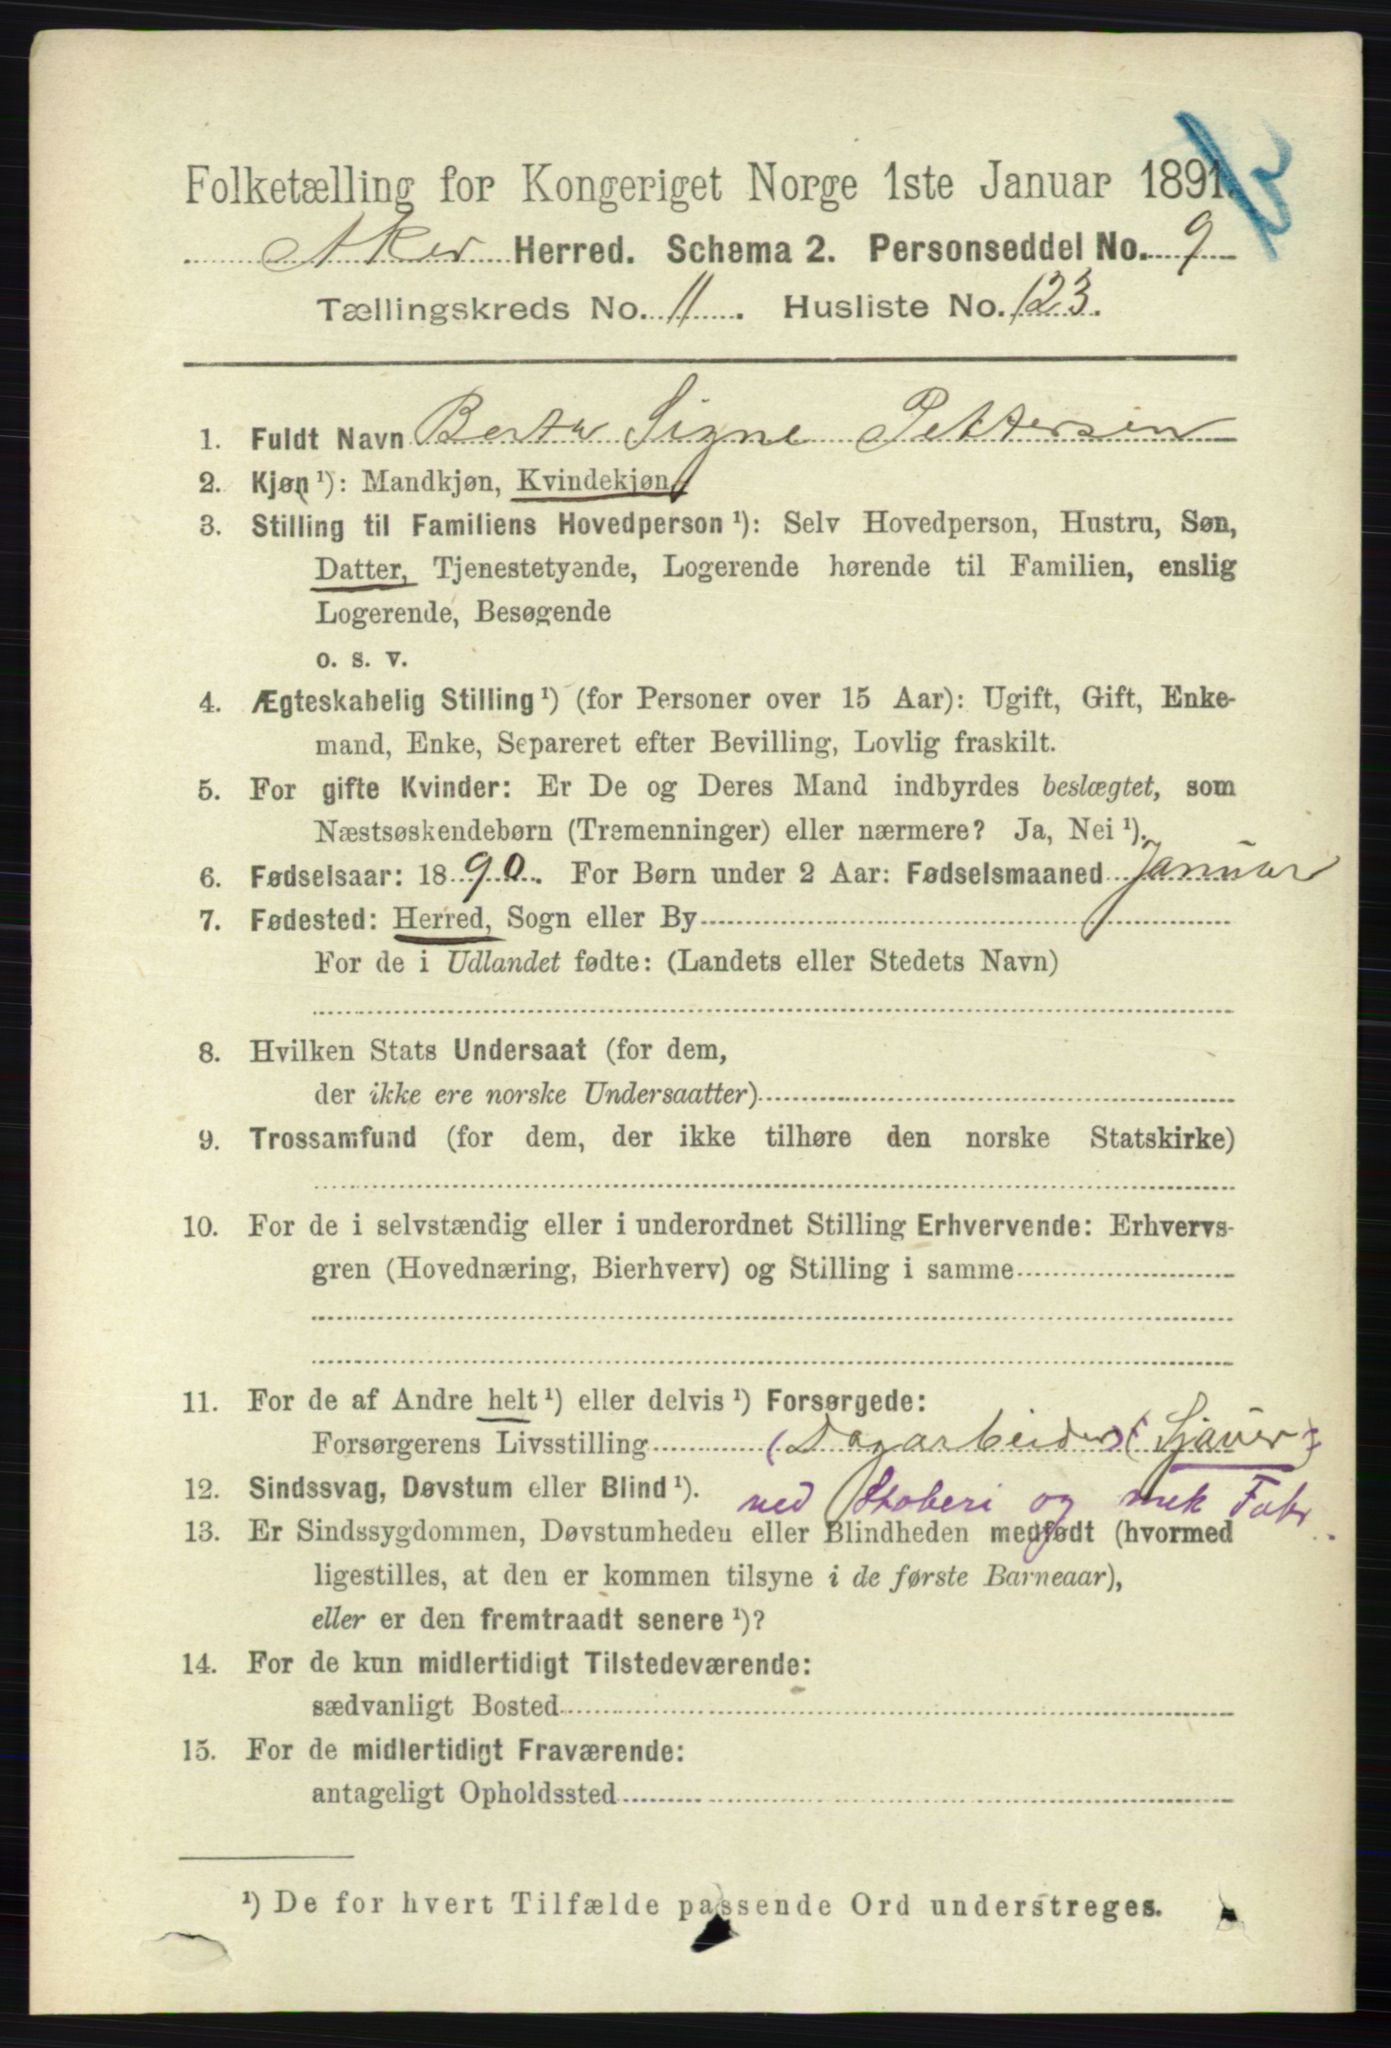 Folketælling for Kongeriget Norge 1ste Januar 1891.
Aker Herred. Schema 2. Personseddel No. 9
Tællingskreds No. 11. Husliste No. 123.
1. Fuldt Navn Berta Signe Pettersen
2. Kjøn ¹): Mandkjøn, Kvindekjøn
3. Stilling til Familiens Hovedperson ¹): Selv Hovedperson, Hustru, Søn,
Datter, Tjenestetyende, Logerende hørende til Familien, enslig
Logerende, Besøgende
o. s. v.
4. Ægteskabelig Stilling ¹) (for Personer over 15 Aar): Ugift, Gift, Enke-
mand, Enke, Separeret efter Bevilling, Lovlig fraskilt.
5. For gifte Kvinder: Er De og Deres Mand indbyrdes beslægtet, som
Næstsøskendebørn (Tremenninger) eller nærmere? Ja, Nei ¹).
6. Fødselsaar: 1890. For Børn under 2 Aar: Fødselsmaaned Januar
7. Fødested: Herred, Sogn eller By
For de i Udlandet fødte: (Landets eller Stedets Navn)
8. Hvilken Stats Undersaat (for dem,
der ikke ere norske Undersaatter)
9. Trossamfund (for dem, der ikke tilhøre den norske Statskirke)
10. For de i selvstændig eller i underordnet Stilling Erhvervende: Erhvervs-
gren (Hovednæring, Bierhverv) og Stilling i samme
11. For de af Andre helt ¹) eller delvis ¹) Forsørgede:
Forsørgerens Livsstilling (Dagarbeider) (Sjauer)
ved Støberi og mek Fabr.
12. Sindssvag, Døvstum eller Blind ¹).
13. Er Sindssygdommen, Døvstumheden eller Blindheden medfødt (hvormed
ligestilles, at den er kommen tilsyne i de første Barneaar),
eller er den fremtraadt senere ¹)?
14. For de kun midlertidigt Tilstedeværende:
sædvanligt Bosted
15. For de midlertidigt Fraværende:
antageligt Opholdssted
¹) De for hvert Tilfælde passende Ord understreges.